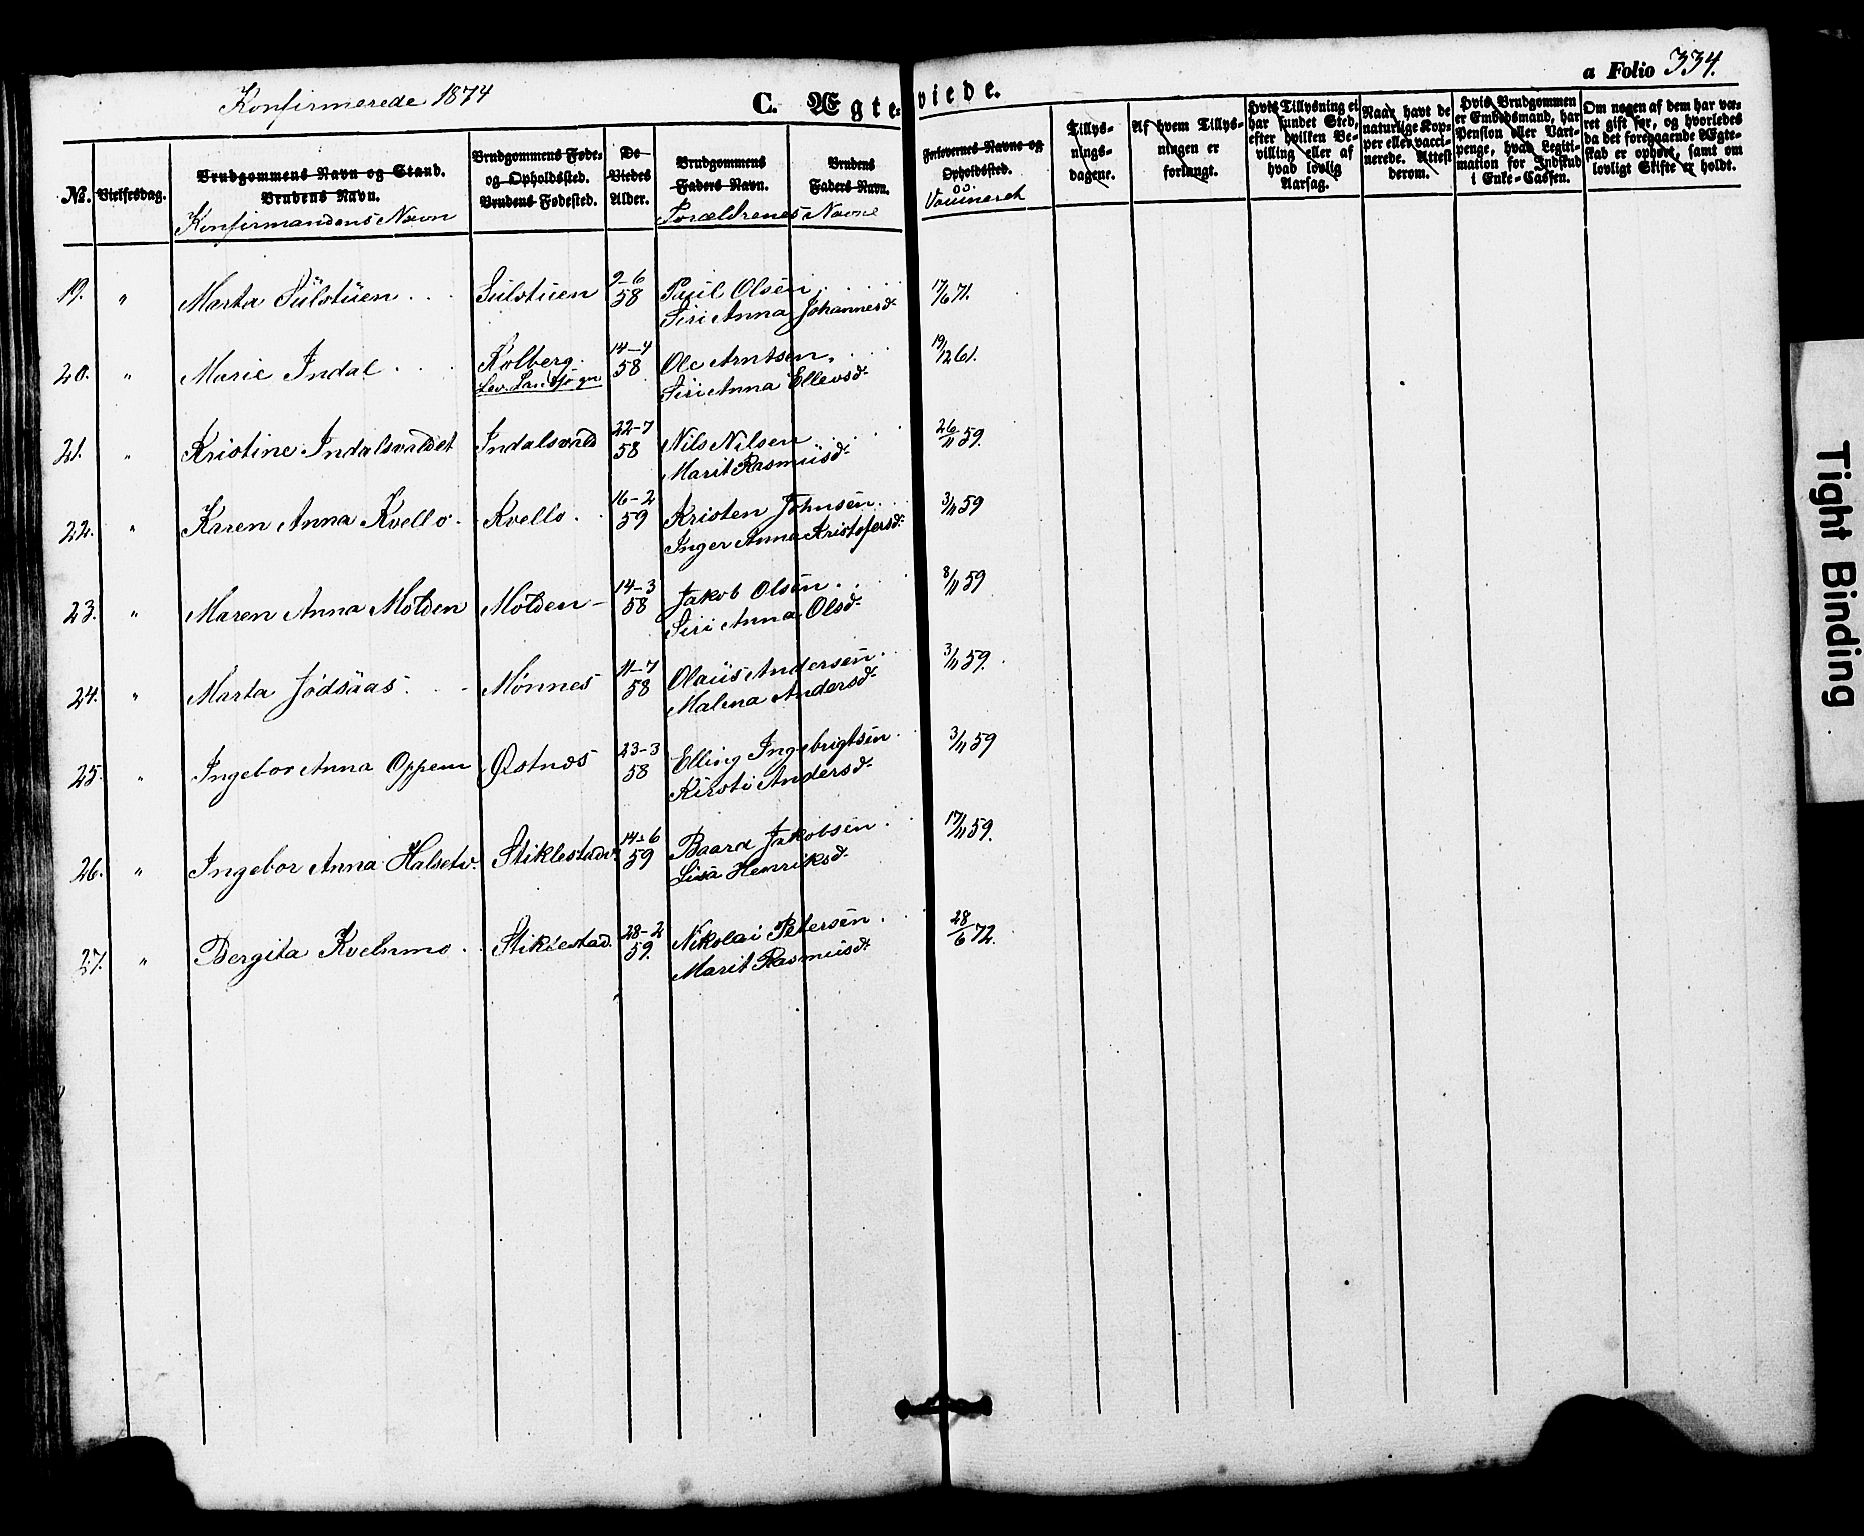 a Folio 334.
Konfirmerede 1874
C. Ægteviede.
No.
Vielsesdag.
Brudgommens Navn og Stand.
Brudens Navn.
Konfirmandens Navn
Brudgommens Føde-
og Opholdssted.
Brudens Fødested.
De
Viedes
Alder.
Brudgommens
Faders Navn.
Brudens
Faders Navn.
Forældrenes Navne
Forlovernes Navne og
Opholdssted.
Tillys-
nings-
dagene.
Af hvem Tillys-
ningen er
forlangt.
Hvis Tillysning ei
har fundet Sted,
efter hvilken Be-
villing eller af
hvad lovlig
Aarsag.
Naar havt de
naturlige Kop-
per eller vacci-
nerede. Attest
derom.
Hvis Brudgommen
er Embedsmand, har
Pension eller Vart-
penge, hvad Legiti-
mation for Indskud
i Enke-Cassen.
Om nogen af dem har væ-
ret gift før, og hvorledes
da det foregaaende Ægte-
skab er ophørt, samt om
lovligt Skifte er holdt.
19. " Marta Sulstuen . . . Sulstuen 9-6 58 Paul Olsen . . . 17/6 71.
Siri Anna Johannesd.
20. " Marie Indal . . . Kolberg. 14-4 58 Ole Arntsen, . . . 19/12 61.
Siri Anna Ellevsd.
21. " Kristine Indalsvaldet Indalsvald 22-7 58 Nils Nilsen . . . 26/11 59.
Marit Rasmusd.
22. " Karen Anna Kvello. Kvello. 16-2 59 Kristen Johnsen. 3/11 59
Inger Anna Kristofersd.
23. " Maren Anna Molden Molden - 14-3 58 Jakob Olsen . . 8/11 59
Siri Anna Olsd.
24. " Marta Jødsaas. . - Mønnes 11-7 58 Olaus Andersen. 3/11 59.
Malena Andersd.
25. " Ingebor Anna Oppem Østnes 23-3 58 Elling Ingebrigtsen. 3/11 59
Kirsti Andersd.
26. " Ingebor Anna Halsetv. Stiklestadv. 14-6 59 Baard Jakobsen. 17/11 59.
Lisa Henriksd.
27. " Bergita Kvelnmo. . Stiklestad. 28-2 59. Nikolai Petersen. 28/6 72.
Marit Rasmusd.
Tight Binding